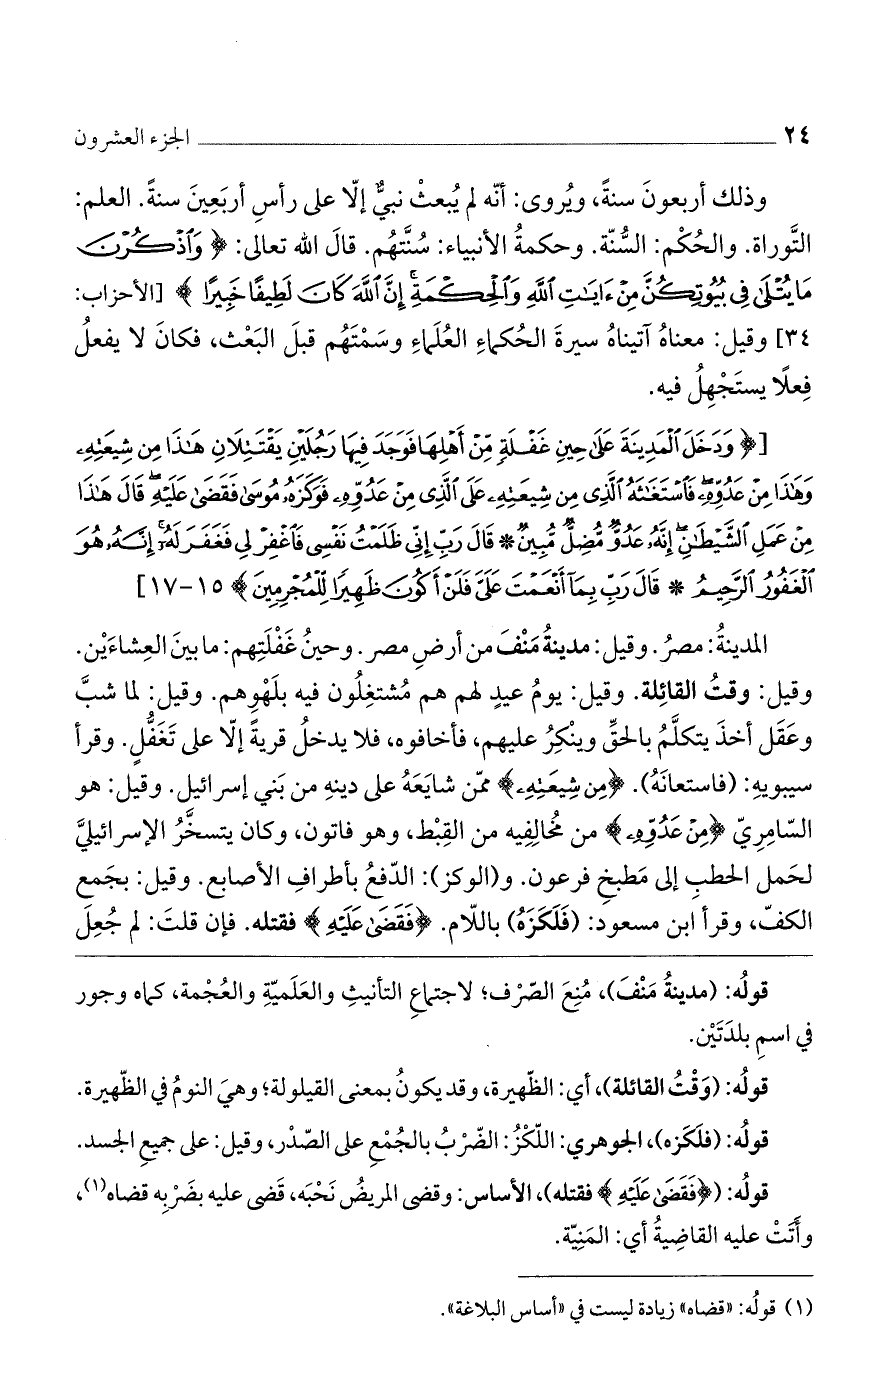 ٢٤ الجزء العشرون
وذلك أربعونَ سنةً، ويُروى: أنّه لم يُبعثْ نبيٌّ إلّا على رأسِ أربَعِينَ سنةً. العلم:
التَّوراة. والحُكْم: السُّنّة. وحكمةُ الأنبياء: سُنَّتهُم. قالَ الله تعالى: ﴿ وَٱذْكُرْنَ
مَا يُتْلَىٰ فِى بُيُوتِكُنَّ مِنْ ءَايَـٰتِ ٱللَّهِ وَٱلْحِكْمَةِ ۚ إِنَّ ٱللَّهَ كَانَ لَطِيفًا خَبِيرًا ﴾ [الأحزاب:
٣٤] وقيل: معناهُ آتيناهُ سيرةَ الحُكماءِ العُلَماءِ وسَمْتَهُم قبلَ البَعْث، فكانَ لا يفعلُ
فِعلًا يستَجْهِلُ فيه.
[﴿ وَدَخَلَ ٱلْمَدِينَةَ عَلَىٰ حِينِ غَفْلَةٍ مِّنْ أَهْلِهَا فَوَجَدَ فِيهَا رَجُلَيْنِ يَقْتَتِلَانِ هَـٰذَا مِن شِيعَتِهِۦ
وَهَـٰذَا مِنْ عَدُوِّهِۦ ۖ فَٱسْتَغَـٰثَهُ ٱلَّذِى مِن شِيعَتِهِۦ عَلَى ٱلَّذِى مِنْ عَدُوِّهِۦ فَوَكَزَهُۥ مُوسَىٰ فَقَضَىٰ عَلَيْهِ ۖ قَالَ هَـٰذَا
مِنْ عَمَلِ ٱلشَّيْطَـٰنِ ۖ إِنَّهُۥ عَدُوٌّ مُّضِلٌّ مُّبِينٌ * قَالَ رَبِّ إِنِّى ظَلَمْتُ نَفْسِى فَٱغْفِرْ لِى فَغَفَرَ لَهُۥٓ ۚ إِنَّهُۥ هُوَ
ٱلْغَفُورُ ٱلرَّحِيمُ * قَالَ رَبِّ بِمَآ أَنْعَمْتَ عَلَىَّ فَلَنْ أَكُونَ ظَهِيرًا لِّلْمُجْرِمِينَ ﴾ ١٥-١٧]
المدينةُ: مصرُ. وقيل: مدينةُ مَنْفَ من أرضِ مصر. وحينُ غَفْلَتِهم: ما بينَ العِشاءَيْن.
وقيل: وقتُ القائِلة. وقيل: يومُ عيدٍ لهم هم مُشتغِلُون فيه بلَهْوِهم. وقيل: لما شبَّ
وعَقَل أخذَ يتكلَّمُ بالحقِّ وينْكِرُ عليهم، فأخافوه، فلا يدخلُ قريةً إلّا على تَغَفُّلٍ. وقرأ
سيبويهِ: (فاستعانَهُ). ﴿مِن شِيعَتِهِۦ﴾ ممّن شايَعَهُ على دينهِ من بَني إسرائيل. وقيل: هو
السّامِريّ ﴿مِنْ عَدُوِّهِۦ﴾ من مُخالِفِيه من القِبْط، وهو فاتون، وكان يتسخَّرُ الإسرائيليَّ
لحَمل الحطبِ إلى مَطبخِ فرعون. و(الوكز): الدّفعُ بأطرافِ الأصابع. وقيل: بجَمعِ
الكفّ، وقرأ ابن مسعود: (فَلَكَزَهُ) باللّام. ﴿فَقَضَىٰ عَلَيْهِ ﴾ فقتله. فإن قلتَ: لم جُعِلَ
قولُه: (مدينةُ مَنْفَ)، مُنِعَ الصّرْف؛ لاجتماعِ التأنيثِ والعَلَميّةِ والعُجْمة، كماه وجور
في اسمِ بلدَتَيْن.
قولُه: (وَقْتُ القائلة)، أي: الظّهيرة، وقد يكونُ بمعنى القيلولة؛ وهيَ النومُ في الظّهيرة.
قولُه: (فلَكَزه)، الجوهري: اللّكْزُ: الضّرْبُ بالجُمْعِ على الصّدْر، وقيل: على جميعِ الجسد.
قولُه: (﴿فَقَضَىٰ عَلَيْهِ ﴾ فقتله)، الأساس: وقضى المريضُ نَحْبَه، قَضى عليه بضَرْبِه قضاه(١)،
وأَتَتْ عليه القاضِيةُ أي: المَنِيّة.
(١) قولُه: «قضاه» زيادة ليست في «أساس البلاغة».